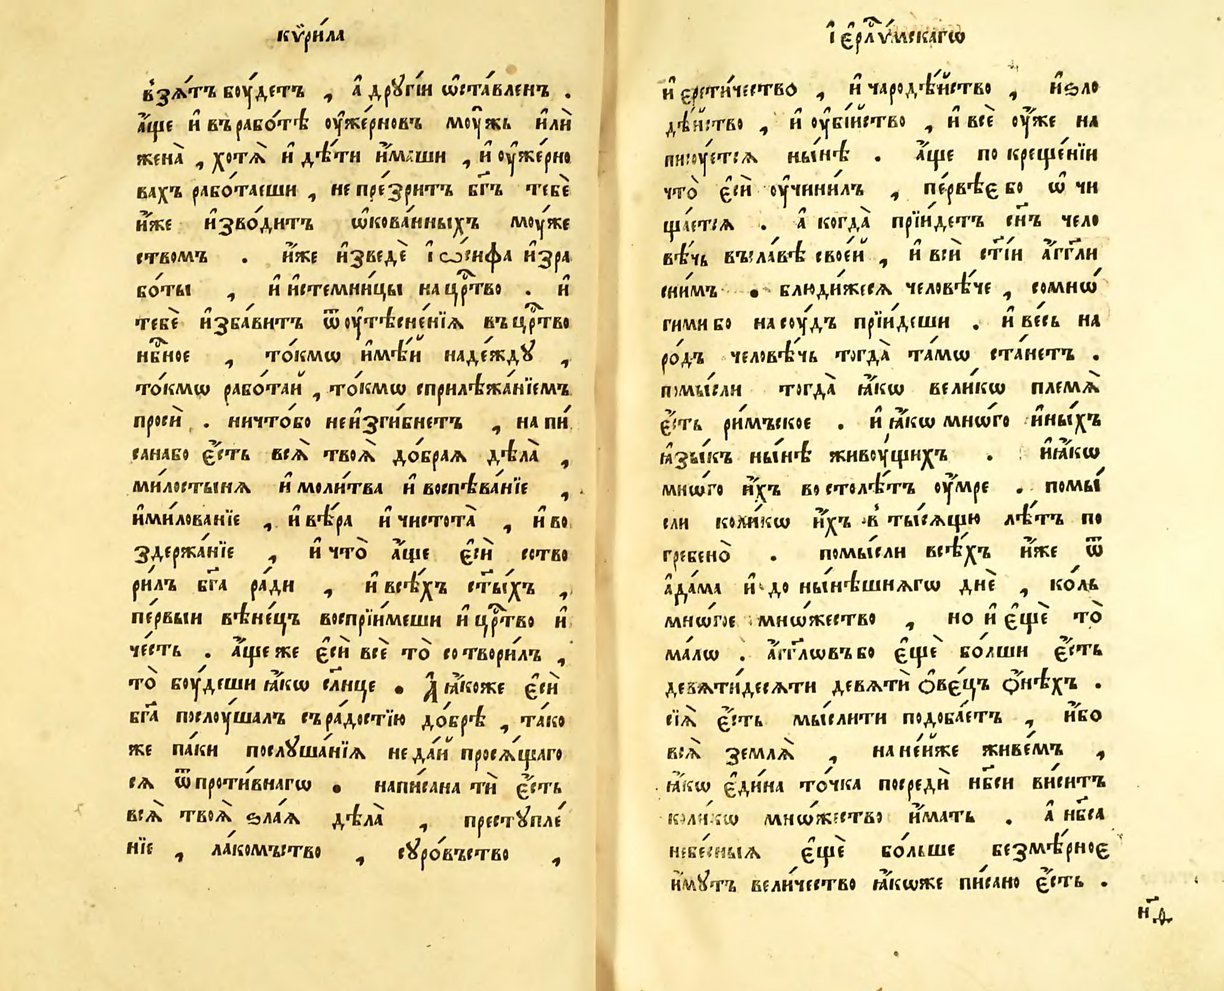 кѷри́ла
взѧ́тъ боу́детъ , а҆ дрꙋгі́и ѡ҆ста́вленъ .
а҆́ще и҆ въ рабо́тѣ оу҆же́рновъ моу́жь и҆лѝ
жена̀ , хотѧ̀ и҆ дѣ́ти и҆́маши , и҆ оу҆же́рно
вахъ рабо́таеши , не пре́зритъ бг҃ъ тебѐ
и҆́же и҆зво́дитъ ѡ҆кова́нныхъ моу́же
ствомъ . и҆́же и҆зведѐ і҆ѡ́сифа и҆зра
бо́ты , и҆ и҆стемни́цы на цр҃тво . и҆
тебѐ и҆зба́витъ ѿ оу҆тѣсне́нїѧ въ цр҃тво
нб҃ное , то́кмѡ и҆мѣ́й наде́ждꙋ ,
то́кмѡ рабо́тай , то́кмѡ сприлѣжа́нїемъ
просѝ . ничто́бо неи҆зги́бнетъ , на пи́
санабо є҆́сть всѧ̀ твоѧ̀ до́браѧ дѣ́ла ,
ми́лостынѧ и҆ моли́тва и҆ воспѣва́нїе ,
и҆милованїе , и҆ вѣ́ра и҆ чистота̀ , и҆ во
здержа́нїе , и҆ что̀ а҆́ще є҆сѝ сотво
ри́лъ бг҃а ра́ди , и҆ всѣ́хъ ст҃ы́хъ ,
пе́рвыи вѣне́цъ воспрїи́меши и҆ цр҃тво и҆
че́сть . а҆́ще же є҆сѝ всѐ то̀ сотвори́лъ ,
то̀ боу́деши ꙗ҆́кѡ сл҃нце . А҆ ꙗ҆́коже є҆сѝ
бг҃а послоу́шалъ съ ра́достїю до́брѣ , та́ко
же па́ки послꙋша́нїѧ не да́й просѧ́щаго
сѧ ѿ проти́внагѡ . напи́сана тѝ є҆́сть
всѧ̀ твоѧ̀ ѕла́ѧ дѣ́ла , престꙋпле́
нїе , ла́комъство , суро́въство ,
і҆ єрл҃и́мскагѡ
и҆ єрети́чество , и҆ чародѣ́йство , и҆ ѕло
дѣ́йство , и҆ оу҆бі́йство , и҆ всѐ оу҆́же на
писꙋ́етсѧ ны́нѣ . а҆́ще по креще́нїи
что̀ є҆сѝ оу҆чини́лъ , пе́рвѣе бо ѡ҆ чи
ща́етсѧ . а҆ когда̀ прїи́детъ сн҃ъ чело
вѣ́чь въ сла́вѣ свое́й , и҆ всѝ ст҃і́и а҆́гг҃ли
сни́мъ . блюди́жесѧ человѣ́че , сомнѡ́
гими бо на соу́дъ прїи́деши . и҆ весь на
ро́дъ человѣ́чь тогда̀ та́мѡ ста́нетъ .
помы́сли тогда̀ ꙗ҆́кѡ вели́кѡ племѧ̀
є҆́сть ри́мъское . и҆ ꙗ҆́кѡ мнѡ́го и҆ны́хъ
ꙗ҆зы́къ ны́нѣ живоу́щихъ . и҆ ꙗ҆́кѡ
мнѡ́го и҆́хъ во столѣ́тъ оу҆́мре . помы́
сли коли́кѡ и҆́хъ в ты́сѧщю лѣ́тъ по
гребено̀ . помы́сли всѣ́хъ и҆́же ѿ
а҆да́ма и҆ до ны́нѣшнѧгѡ днѐ , ко́ль
мнѡ́гое мнѡ́жество , но и҆ є҆щѐ то̀
ма́лѡ . а҆́гг҃лѡвъ бо є҆щѐ бо́лши є҆́сть
девѧти́десѧти девѧтѝ ѻ҆ве́цъ ѻ҆нѣ́хъ .
сїѧ̀ є҆́сть мы́слити подоба́етъ , и҆́бо
всѧ̀ землѧ̀ , на не́йже живе́мъ ,
ꙗ҆́кѡ є҆ди́на то́чка посредѝ нб҃си виси́тъ
коли́кѡ мнѡ́жество и҆́мать . а҆ нб҃са
небе́сныѧ є҆щѐ бо́льше безмѣ́рное
и҆́мꙋтъ вели́чество ꙗ҆́коже пи́сано є҆́сть .